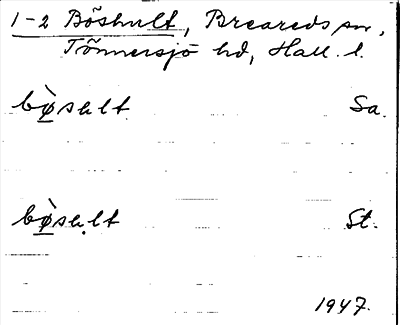 1-2 Böshult, Breareds sn,
Tönnersjö hd, Hall. l.
bø̀sɷlt Sa.
bø̀sɷ̣lt St.
1947.